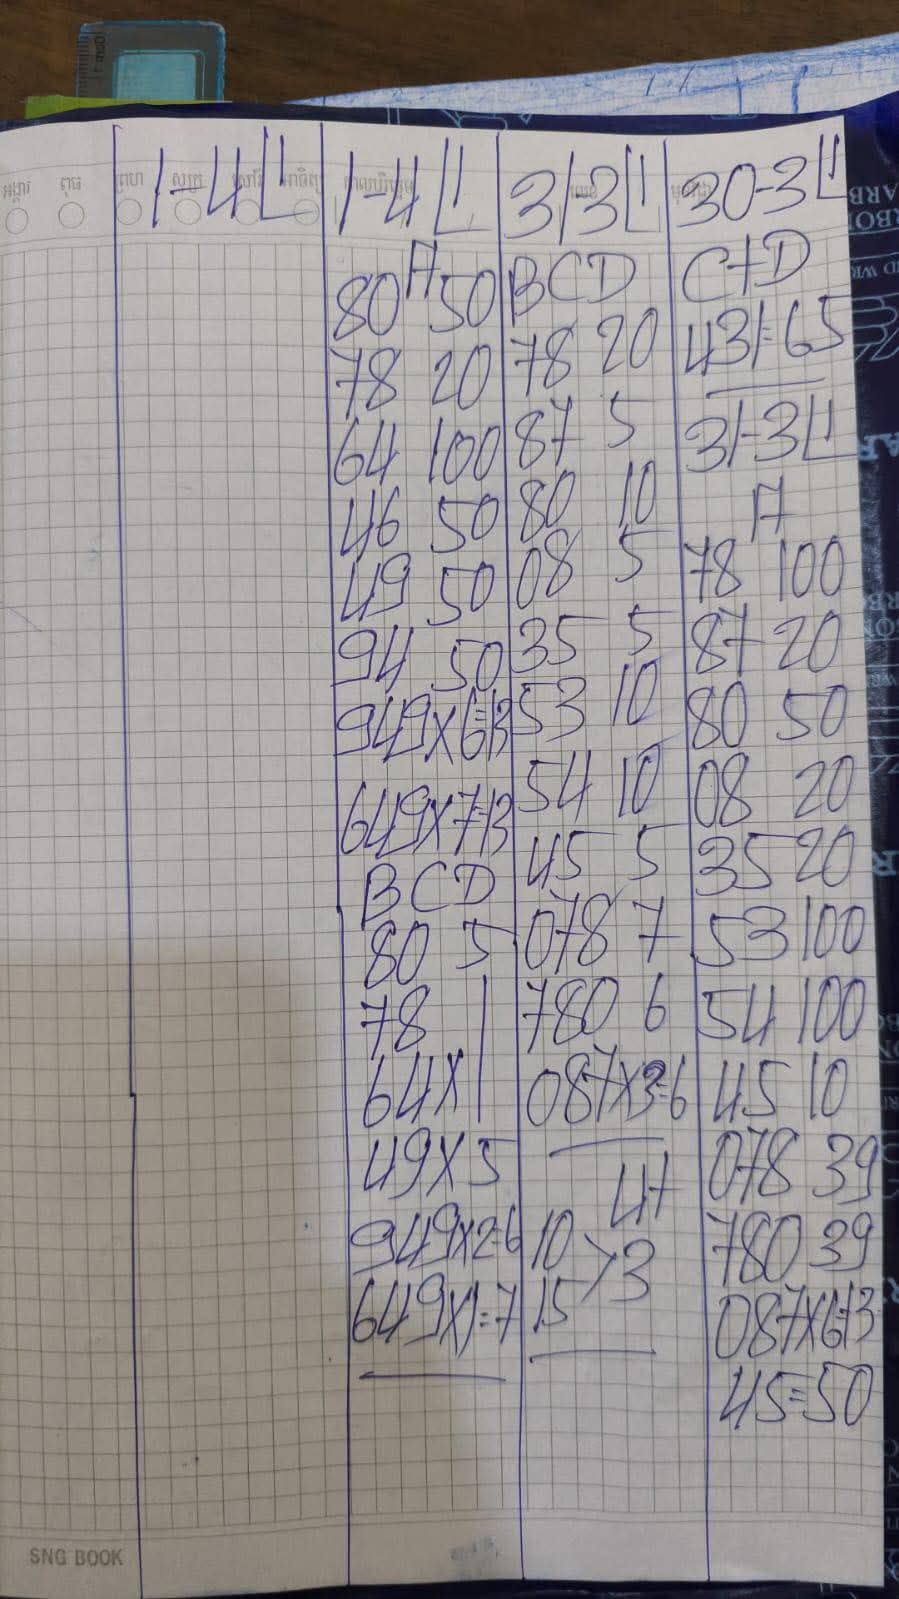 អង្គារ ពុធ ព្រហ សុក្រ សៅរ៍ អាទិត្យ
1-4 L'
1-4 L'
A
80 50
78 20
64 100
46 50
49 50
94 50
949x6=13
649x7=13
BCD
80 5
78 1
64x1
49x5
949x2=6
649x1=7
31/3 L'
BCD
78 20
87 5
80 10
08 5
35 5
53 10
54 10
45 5
078 7
780 6
087x3=6
4+
10
>3
15
30-3 L'
C+D
431=65
31-3 L'
A
78 100
87 20
80 50
08 20
35 20
53 100
54 100
45 10
078 39
780 39
087x6=13
45=50
SNG BOOK